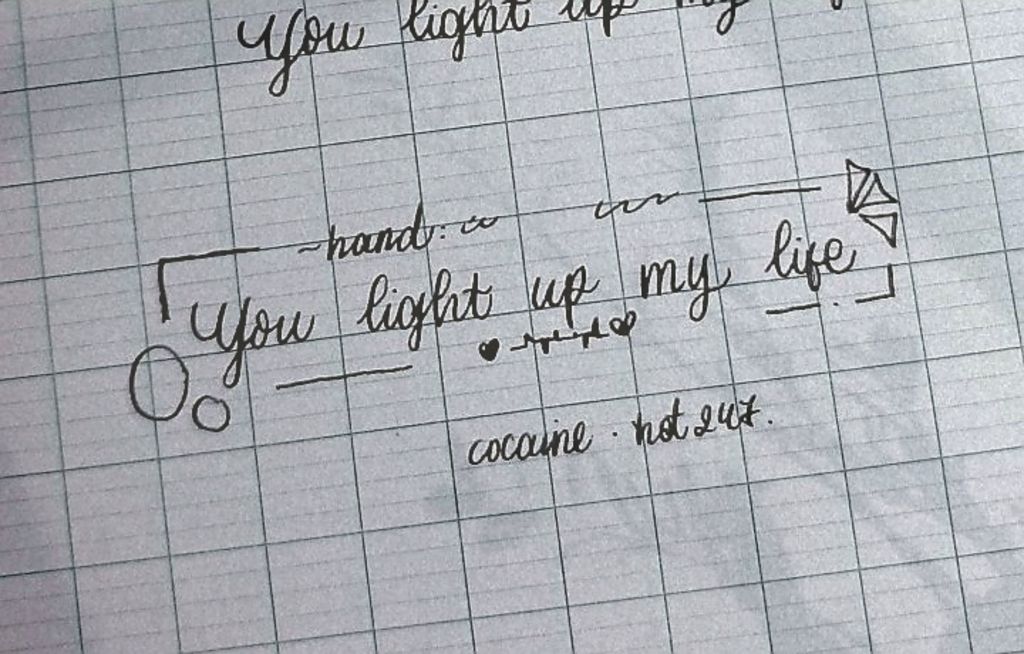 You light up my
hand:
You light up my life
cocaine . hot 247.